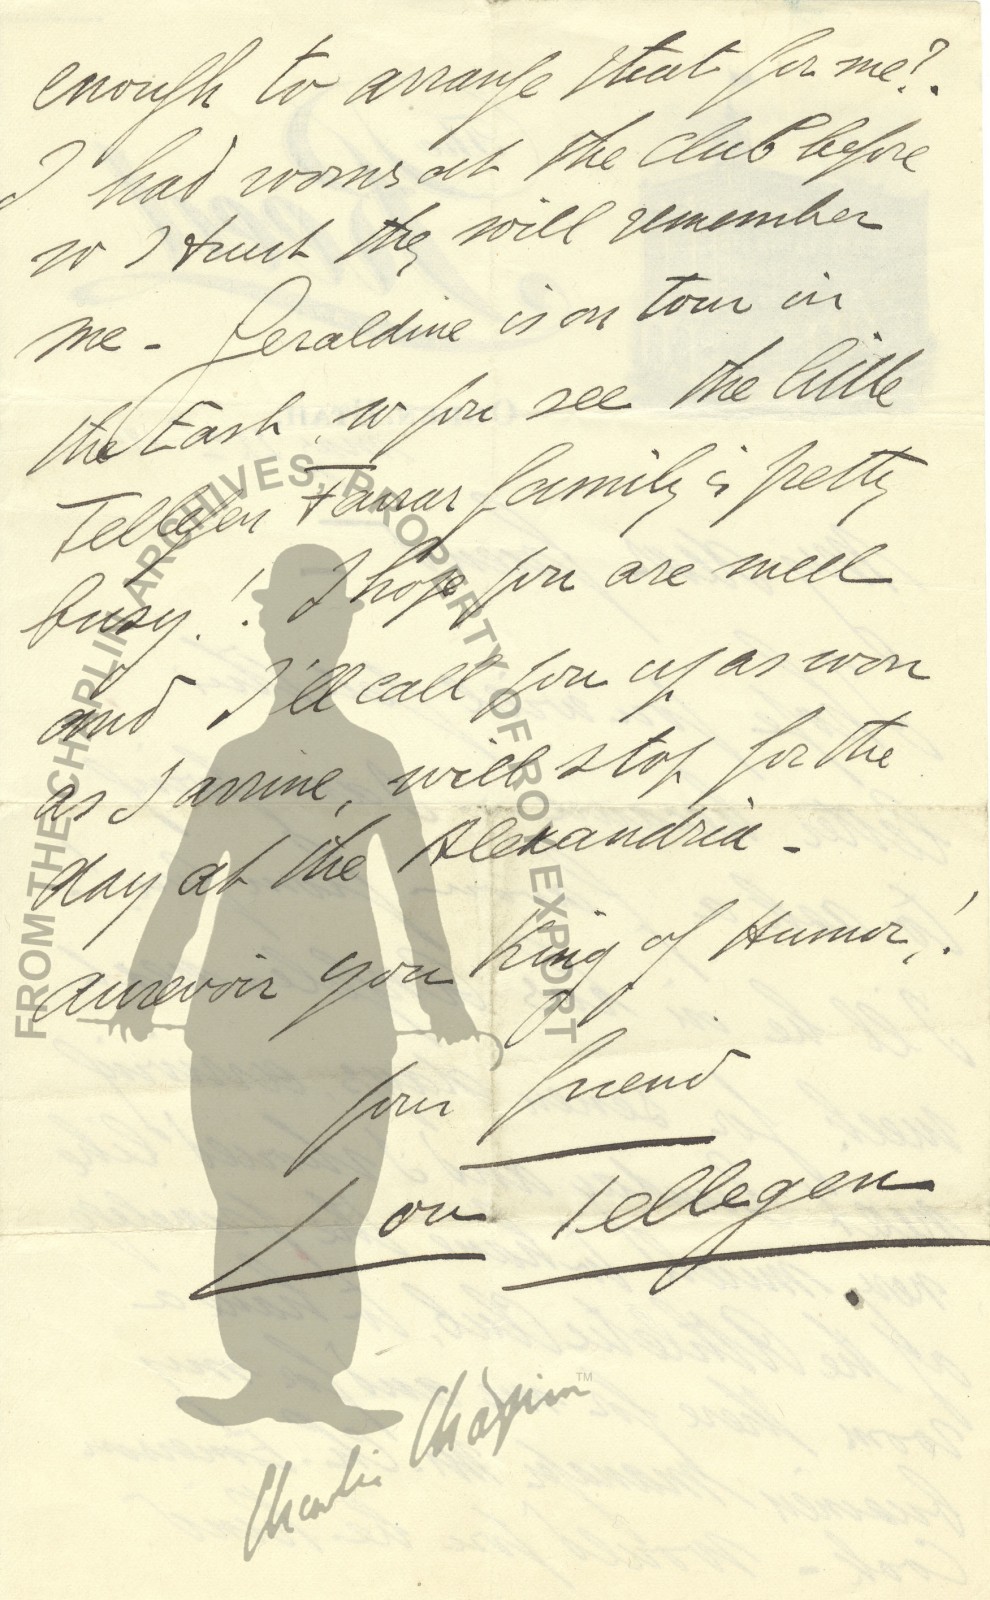 enough to arrange that for me?.
I had rooms at the club before
so I trust they will remember
me - Geraldine is on tour in
the East, so you see the little
Tellegen Farrar family is pretty
busy.! I hope you are well
and I'll call you up as soon
as I arrive, will stop for the
day at the Alexandria -
aurevoir you King of Humor,!
your friend
Lou Tellegen
FROM THE CHAPLIN ARCHIVES, PROPERTY OF ROY EXPORT
Charlie Chaplin™